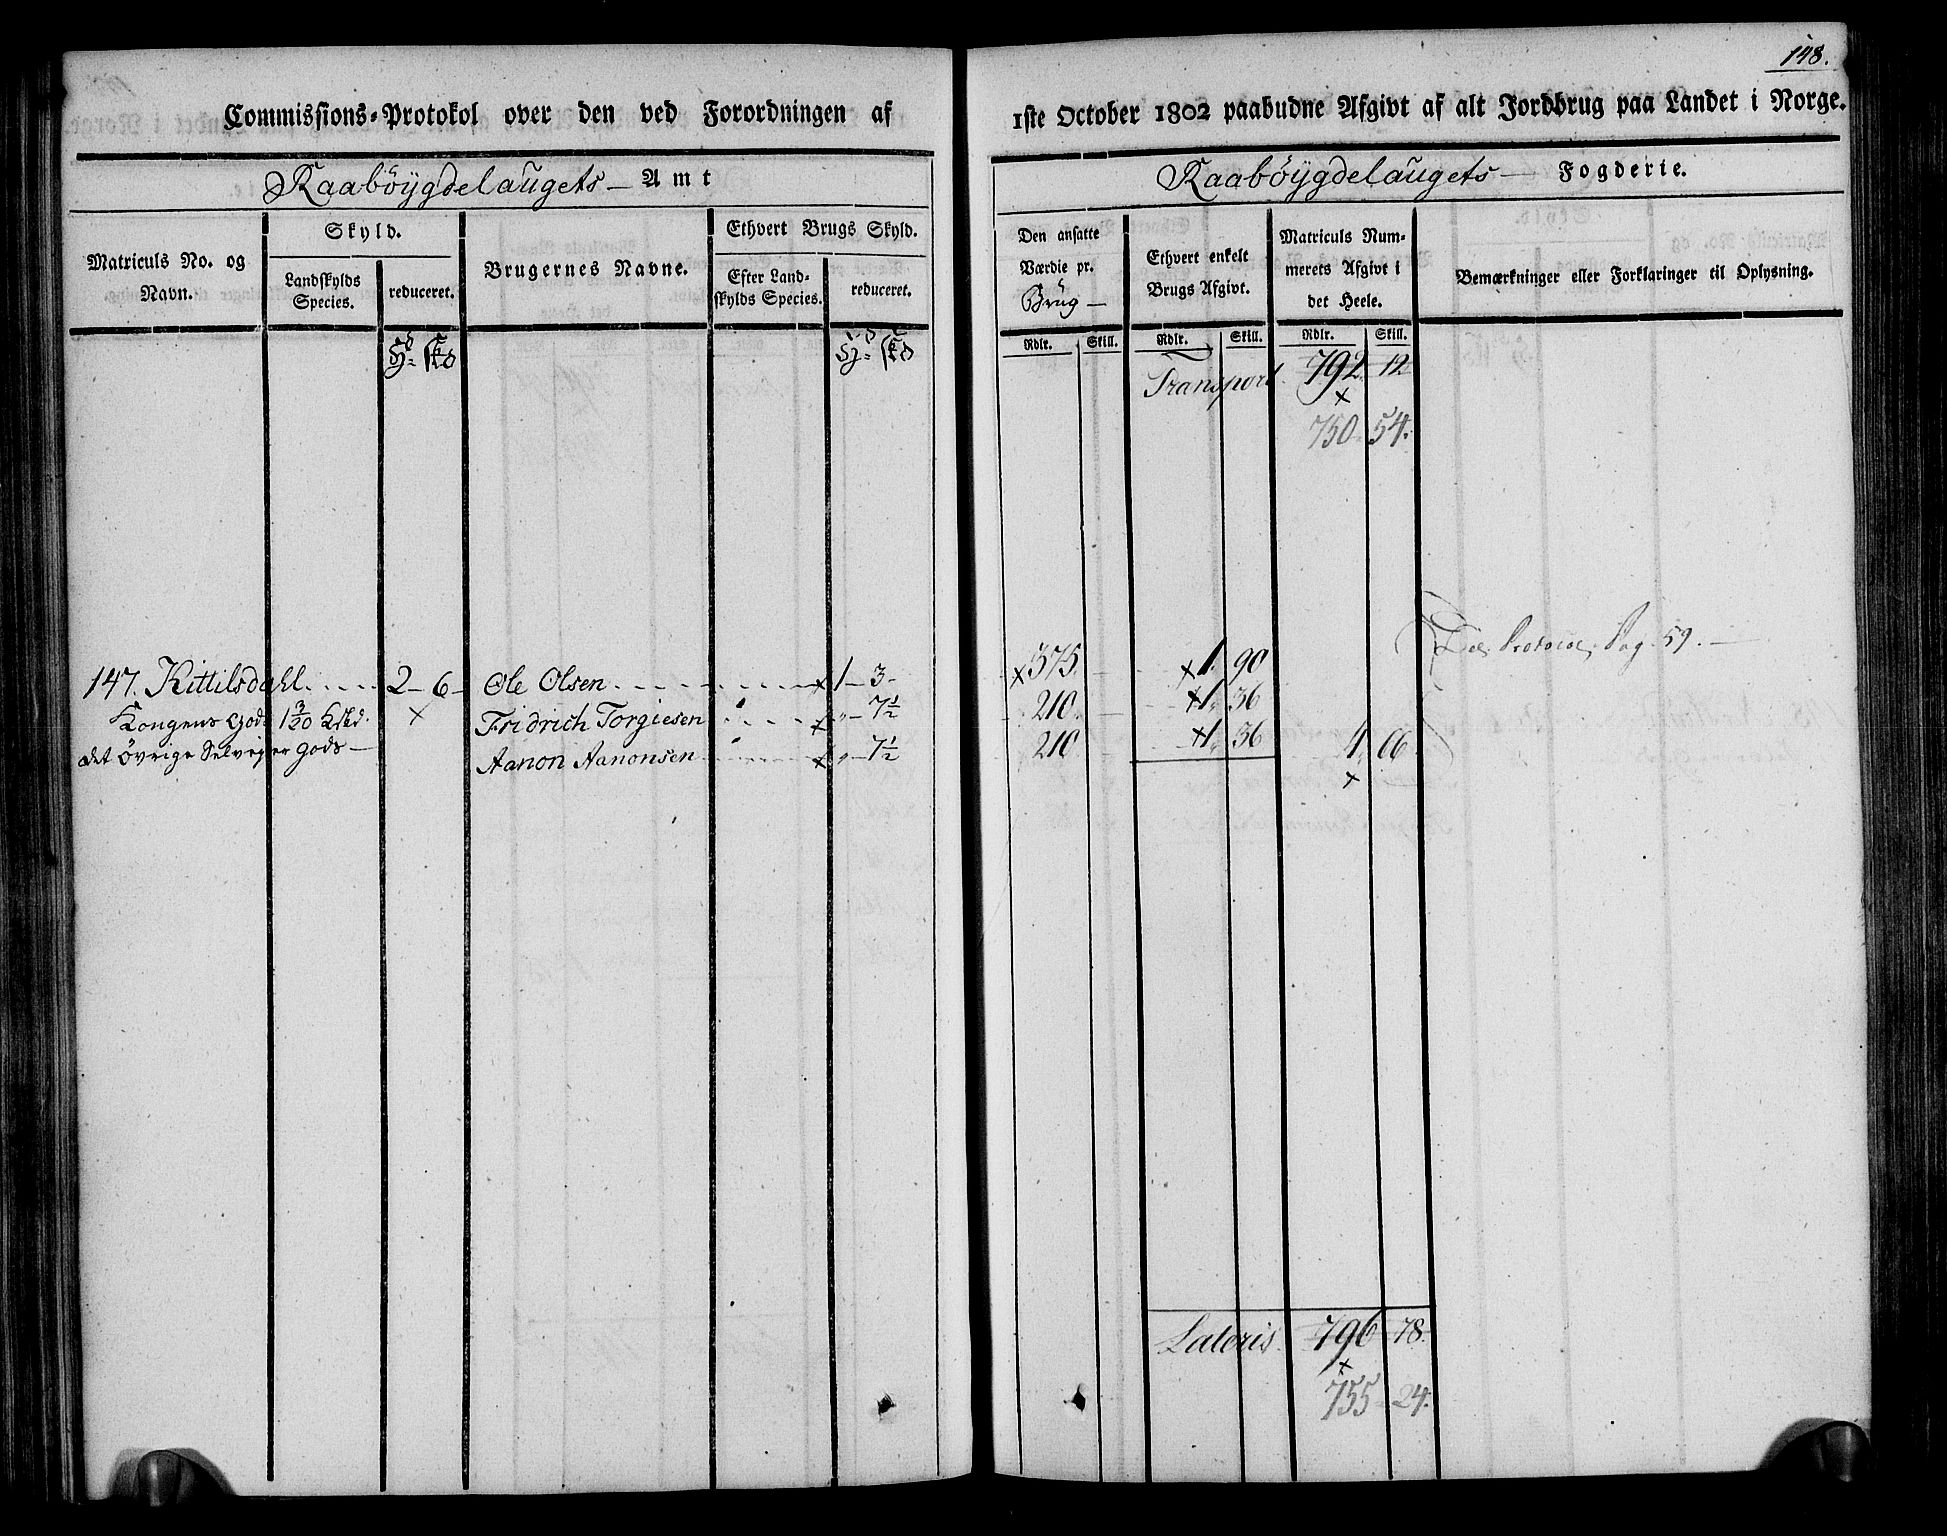 148.
Commissions-Protokol over den ved Forordningen af 1ste October 1802 paabudne Afgivt af alt Jordbrug paa Landet i Norge.
Raabøygdelaugets — Amt
Raabøygdelaugets — Fogderie.
Matriculs No. og Navn.
Skyld.
Landskylds Species.
reduceret.
Brugernes Navne.
Ethvert Brugs Skyld.
Efter Landskylds Species.
reduceret.
Den ansatte Værdie pr. Brug —
Ethvert enkelt Brugs Afgivt.
Matriculs Nummerets Afgivt i det Heele.
Bemærkninger eller Forklaringer til Oplysning.
Rdlr. Skill. Rdlr. Skill. Rdlr. Skill.
Transport. 792. 12
750. 54.
Pag. 59. —
147. Kittilsdahl..... 2 - 6 - Ole Olsen........ x 1 - 3 - x 375. x 1. 90
Kongens Gods 1 3/20 x Fridrich Torgiesen .... x „ - 7 1/2 210. x 1. 36
det övrige Selvejer Gods — Aanon Aanonsen ........ x „ - 7 1/2 210. x 1. 36 4. 66
x
Lateris. 796 - 78.
x
755 - 24.